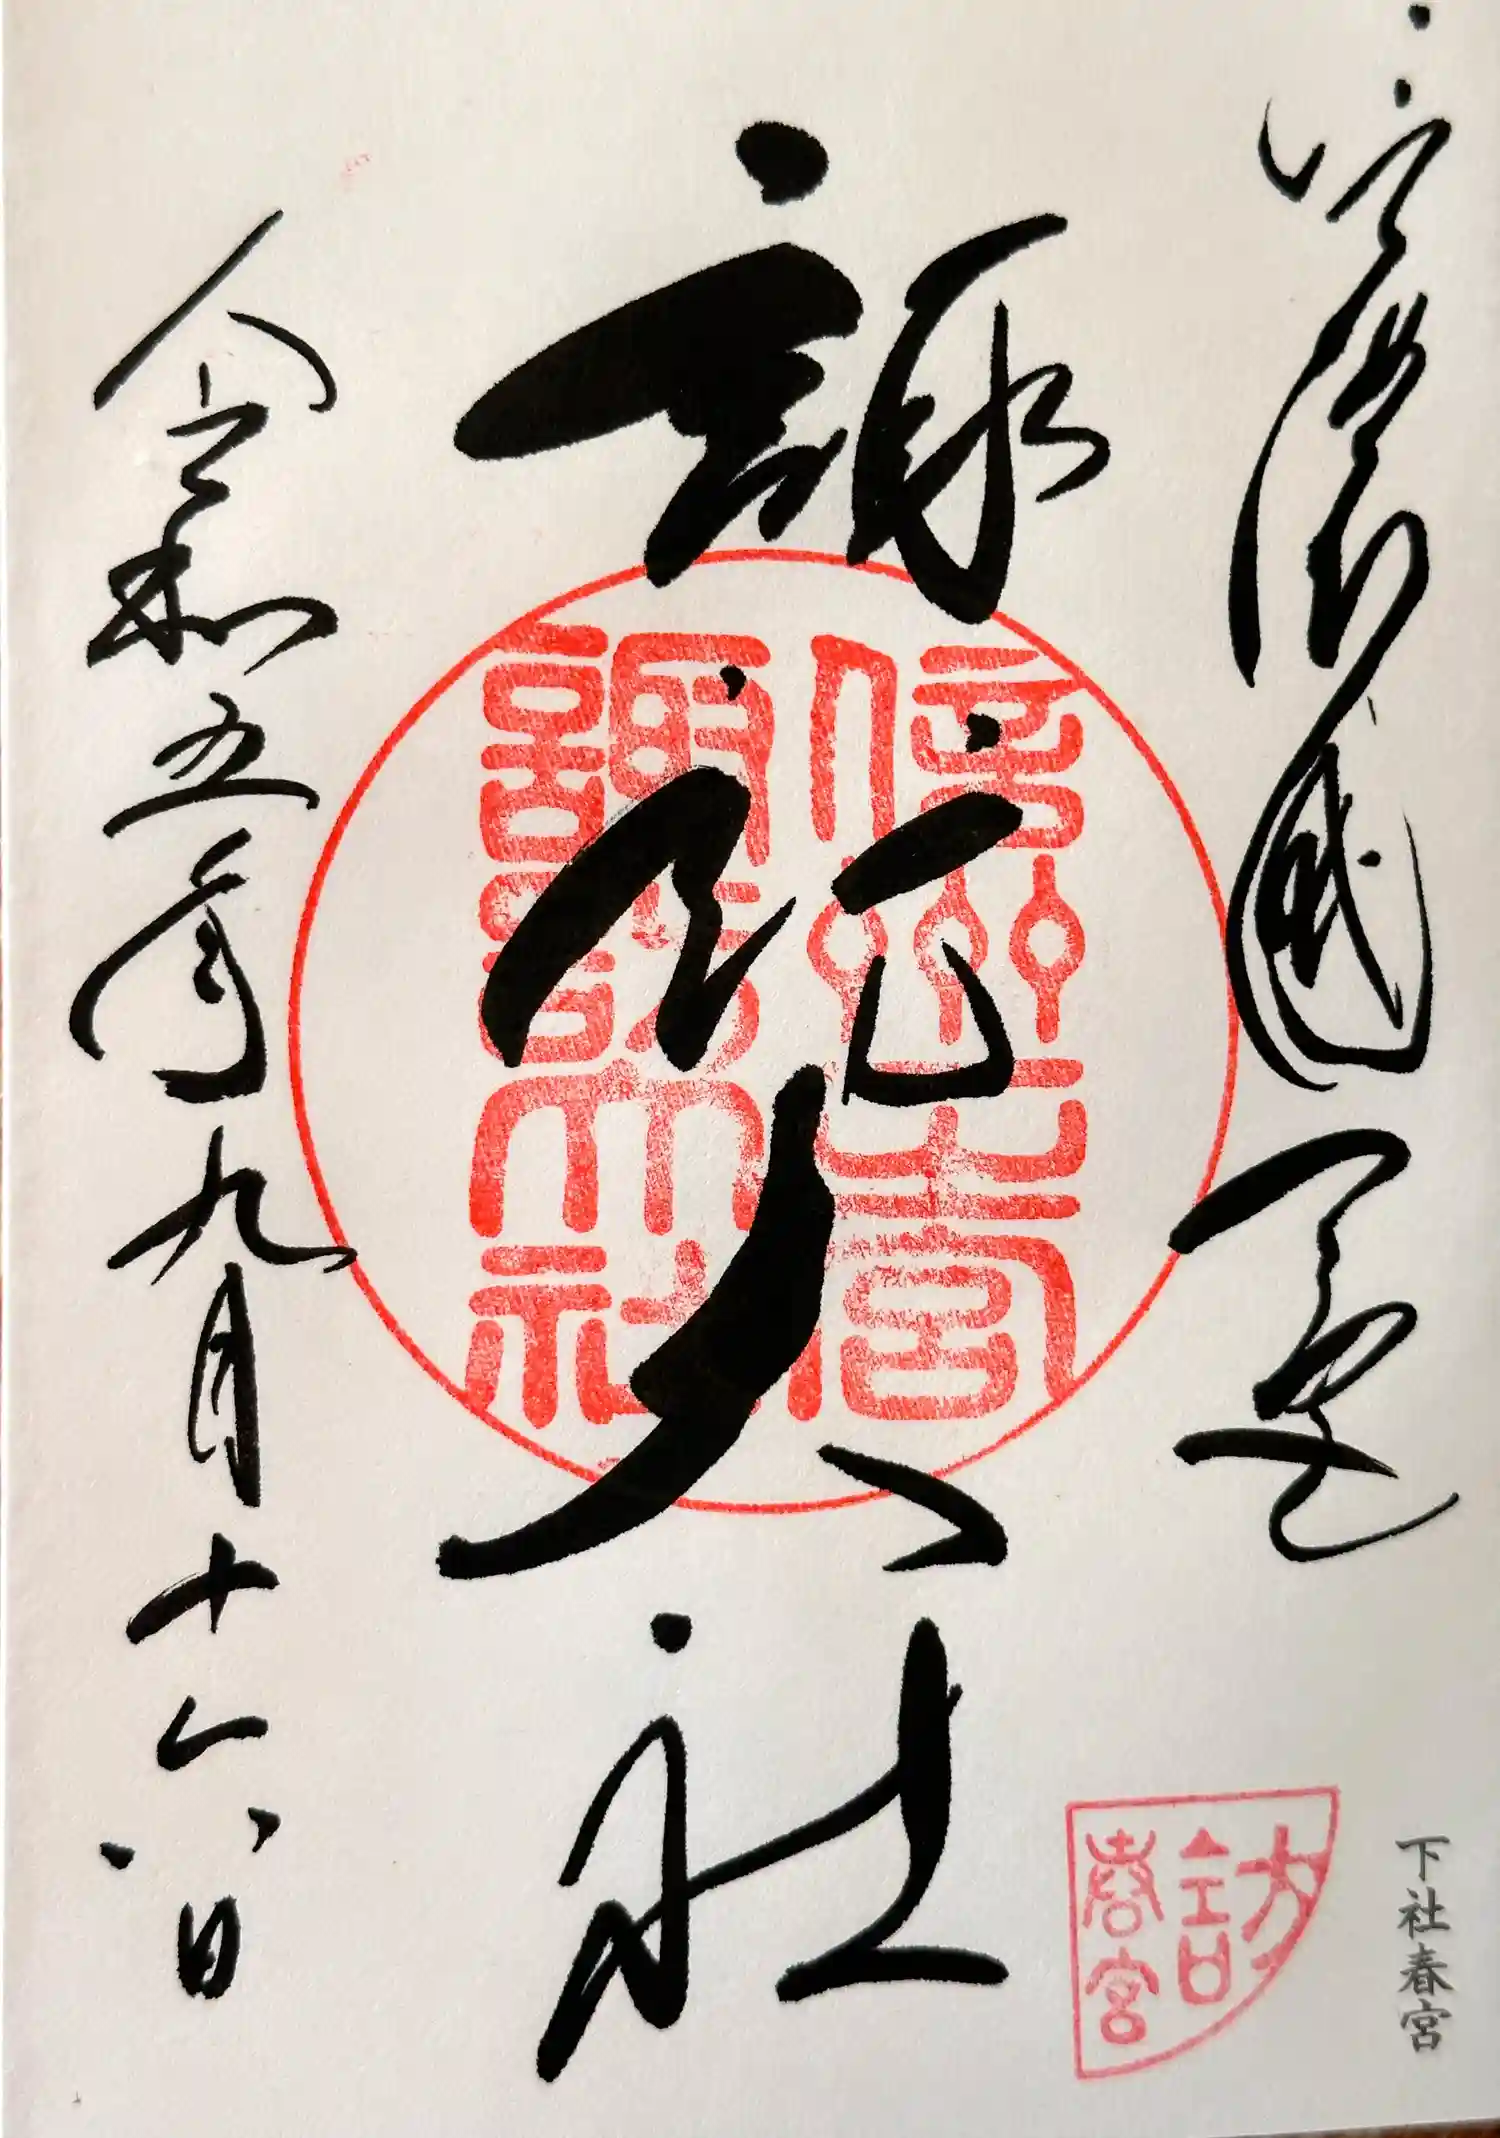 信濃國
諏訪大社
令和五年九月十六日
信州一之宮
諏訪大社
訪
春宮
下社春宮